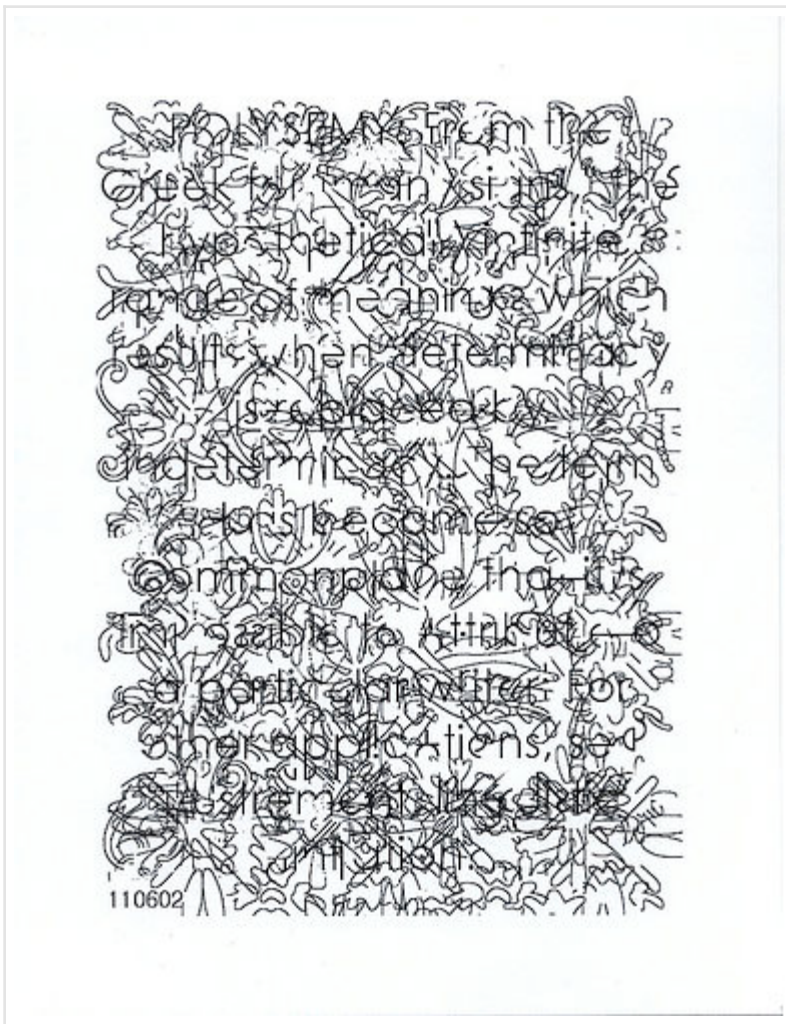 POLYSEMY: From the
Greek for 'many signs', the
hypothetically infinite
range of meanings which
results when determinacy
is replaced by
indeterminacy. The term
has become so
commonplace that it is
impossible to attribute to
a particular writer. For
other applications, see
limitation.
110602